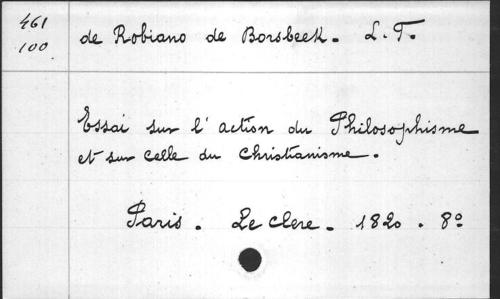 461
100
de Robiano de Borsbeek. L. T.
Essai sur l'action du Philosophisme
et sur celle du Christianisme.
Paris. Le clere. 1820. 8º